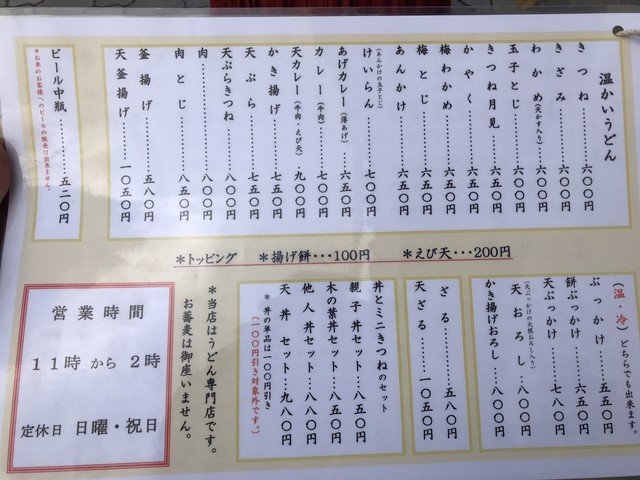 温かいうどん
きつね………六〇〇円
きざみ………六〇〇円
わかめ(天かす入り)…六〇〇円
玉子とじ………六〇〇円
きつね月見………六五〇円
かやく………六五〇円
梅わかめ………六五〇円
梅とじ………六五〇円
あんかけ………六五〇円
けいらん………七〇〇円
(あんかけの玉子とじ)
あげカレー(薄あげ)…六五〇円
カレー(牛肉)………七五〇円
天カレー(牛肉・えび天)…九〇〇円
かき揚げ………七五〇円
天ぷら………七五〇円
天ぷらきつね………八〇〇円
肉………八〇〇円
肉とじ………八五〇円
釜揚げ………五八〇円
天釜揚げ………一〇五〇円
ビール中瓶………五二〇円
*お車のお客様へのビールの販売は出来ません。
*トッピング *揚げ餅･･･100円 *えび天･･･200円
(温・冷)どちらでも出来ます。
ぶっかけ…五五〇円
餅ぶっかけ…六五〇円
天ぶっかけ…七八〇円
天おろし…八〇〇円
(天ぶっかけの大根おろし入り)
かき揚げおろし…八〇〇円
ざる………五八〇円
天ざる………一〇五〇円
丼とミニきつねのセット
親子丼セット…八五〇円
木の葉丼セット…八五〇円
他人丼セット…八八〇円
天丼セット…九八〇円
*丼の単品は一〇〇円引き
(一〇〇円引き対象外です。)
*当店はうどん専門店です。
お蕎麦は御座いません。
営業時間
11時から2時
定休日 日曜・祝日